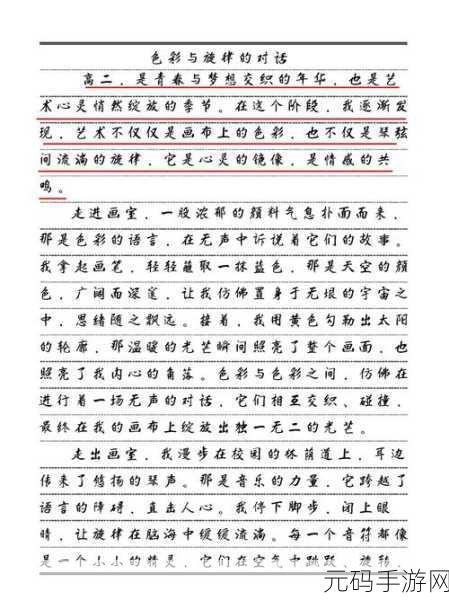 色彩与旋律的对话
高二，是青春与梦想交织的年华，也是艺
术心灵悄然绽放的季节。在这个阶段，我逐渐发
现，艺术不仅仅是画布上的色彩，也不仅是琴弦
间流淌的旋律，它是心灵的镜像，是情感的共
鸣。
走进画室，一股浓郁的颜料气息扑面而来，
那是色彩的语言，在无声中诉说着它们的故事。
我拿起画笔，轻轻蘸取一抹蓝色，那是天空的颜
色，广阔而深邃，让我仿佛置身于无垠的宇宙之
中，思绪随之飘远。接着，我用黄色勾勒出太阳
的轮廓，那温暖的光芒瞬间照亮了整个画面，也
照亮了我内心的角落。色彩与色彩之间，仿佛在
进行着一场无声的对话，它们相互交织、碰撞，
最终在我的画布上绽放出独一无二的光芒。
走出画室，我漫步在校园的林荫道上，耳边
传来了悠扬的琴声。那是音乐的力量，它跨越了
语言的障碍，直击人心。我停下脚步，闭上眼
睛，让旋律在脑海中缓缓流淌。每一个音符都像
是一个小小的精灵，它们在空气中跳跃、旋转，
元码手游网